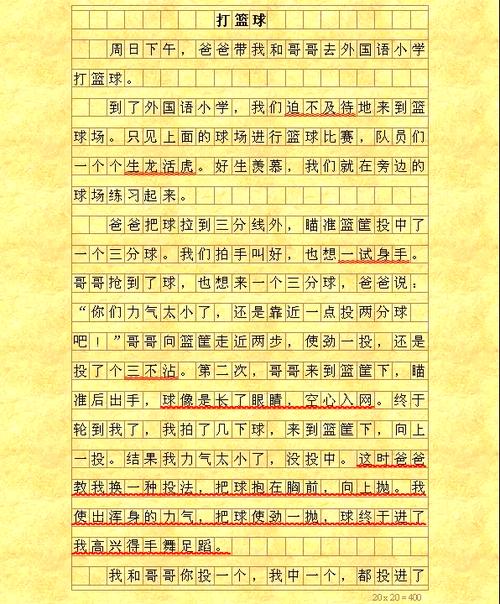 打篮球
周日下午，爸爸带我和哥哥去外国语小学
打篮球。
到了外国语小学，我们迫不及待地来到篮
球场。只见上面的球场进行篮球比赛，队员们
一个个生龙活虎。好生羡慕，我们就在旁边的
球场练习起来。
爸爸把球拉到三分线外，瞄准篮筐投中了
一个三分球。我们拍手叫好，也想一试身手。
哥哥抢到了球，也想来一个三分球，爸爸说：
“你们力气太小了，还是靠近一点投两分球
吧！”哥哥向篮筐走近两步，使劲一投，还是
投了个三不沾。第二次，哥哥来到篮筐下，瞄
准后出手，球像是长了眼睛，空心入网。终于
轮到我了，我拍了几下球，来到篮筐下，向上
一投。结果我力气太小了，没投中。这时爸爸
教我换一种投法，把球抱在胸前，向上抛。我
使出浑身的力气，把球使劲一抛，球终于进了
我高兴得手舞足蹈。
我和哥哥你投一个，我中一个，都投进了
20×20=400